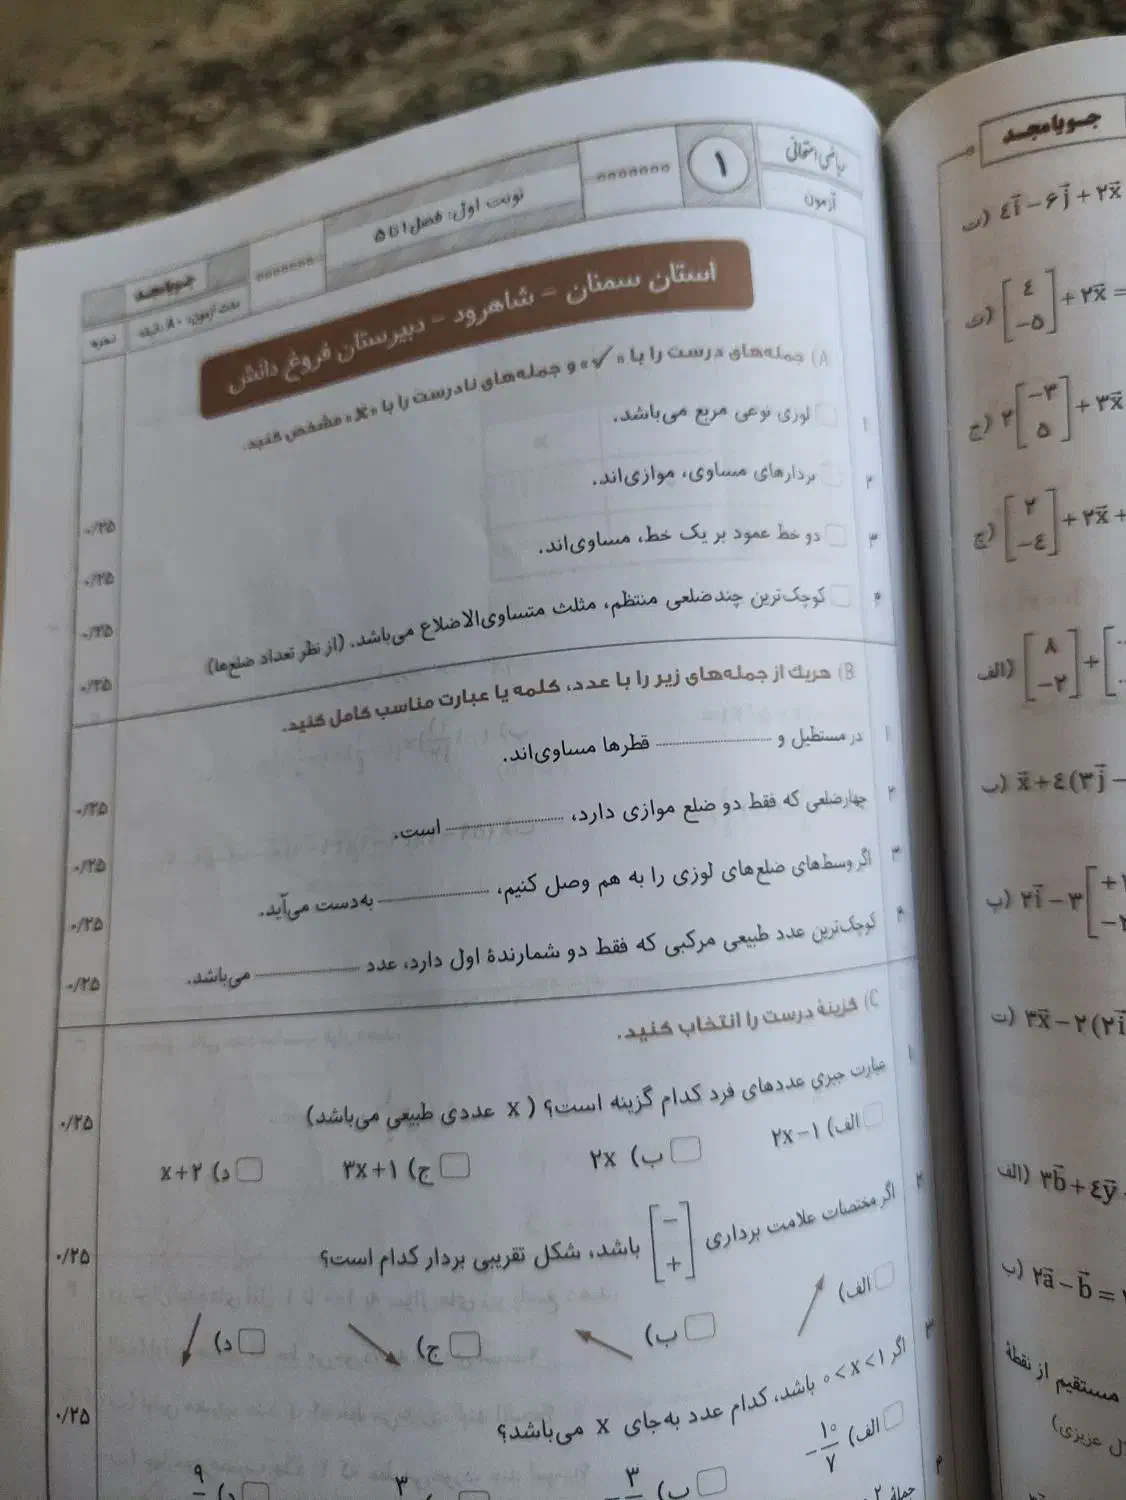 ریاضی امتحانی
آزمون
۱
نوبت اوّل: فصل ۱ تا ۵
جویا مجد
مدت آزمون: ۸۰ دقیقه
نمره
استان سمنان – شاهرود – دبیرستان فروغ دانش
A) جمله‌های درست را با «✓» و جمله‌های نادرست را با «×» مشخص کنید.
۱ لوزی نوعی مربع می‌باشد. ۰/۲۵
۲ بردارهای مساوی، موازی‌اند. ۰/۲۵
۳ دو خط عمود بر یک خط، مساوی‌اند. ۰/۲۵
۴ کوچک‌ترین چندضلعی منتظم، مثلث متساوی‌الاضلاع می‌باشد. (از نظر تعداد ضلع‌ها) ۰/۲۵
B) هریک از جمله‌های زیر را با عدد، کلمه یا عبارت مناسب کامل کنید.
۱ در مستطیل و .......... قطرها مساوی‌اند. ۰/۲۵
۲ چهارضلعی که فقط دو ضلع موازی دارد، .......... است. ۰/۲۵
۳ اگر وسط‌های ضلع‌های لوزی را به هم وصل کنیم، .......... به‌دست می‌آید. ۰/۲۵
۴ کوچک‌ترین عدد طبیعی مرکبی که فقط دو شمارندهٔ اول دارد، عدد .......... می‌باشد. ۰/۲۵
C) گزینهٔ درست را انتخاب کنید.
۱ عبارت جبری عددهای فرد کدام گزینه است؟ (x عددی طبیعی می‌باشد) ۰/۲۵
الف) ۲x-۱ ب) ۲x ج) ۳x+۱ د) x+۲
۲ اگر مختصات علامت برداری [- +] باشد، شکل تقریبی بردار کدام است؟ ۰/۲۵
الف) ب) ج) د)
۳ اگر ۰<x<۱ باشد، کدام عدد به‌جای x می‌باشد؟ ۰/۲۵
الف) -۱۰/۷ ب) ۳ ۳ د) ۹
جویا مجد
ت) ۴i-۶j+۲x
ث) [۴ -۵]+۲x=
ج) ۲[-۳ ۵]+۳x
چ) [۲ -۴]+۲x+
الف) [۸ -۲]+
ب) x+۴(۳j-
پ) ۲i-۳
ت) ۳x-۲(۲i
الف) ۳b+۴y
ب) ۲a-b=
مستقیم از نقطهٔ